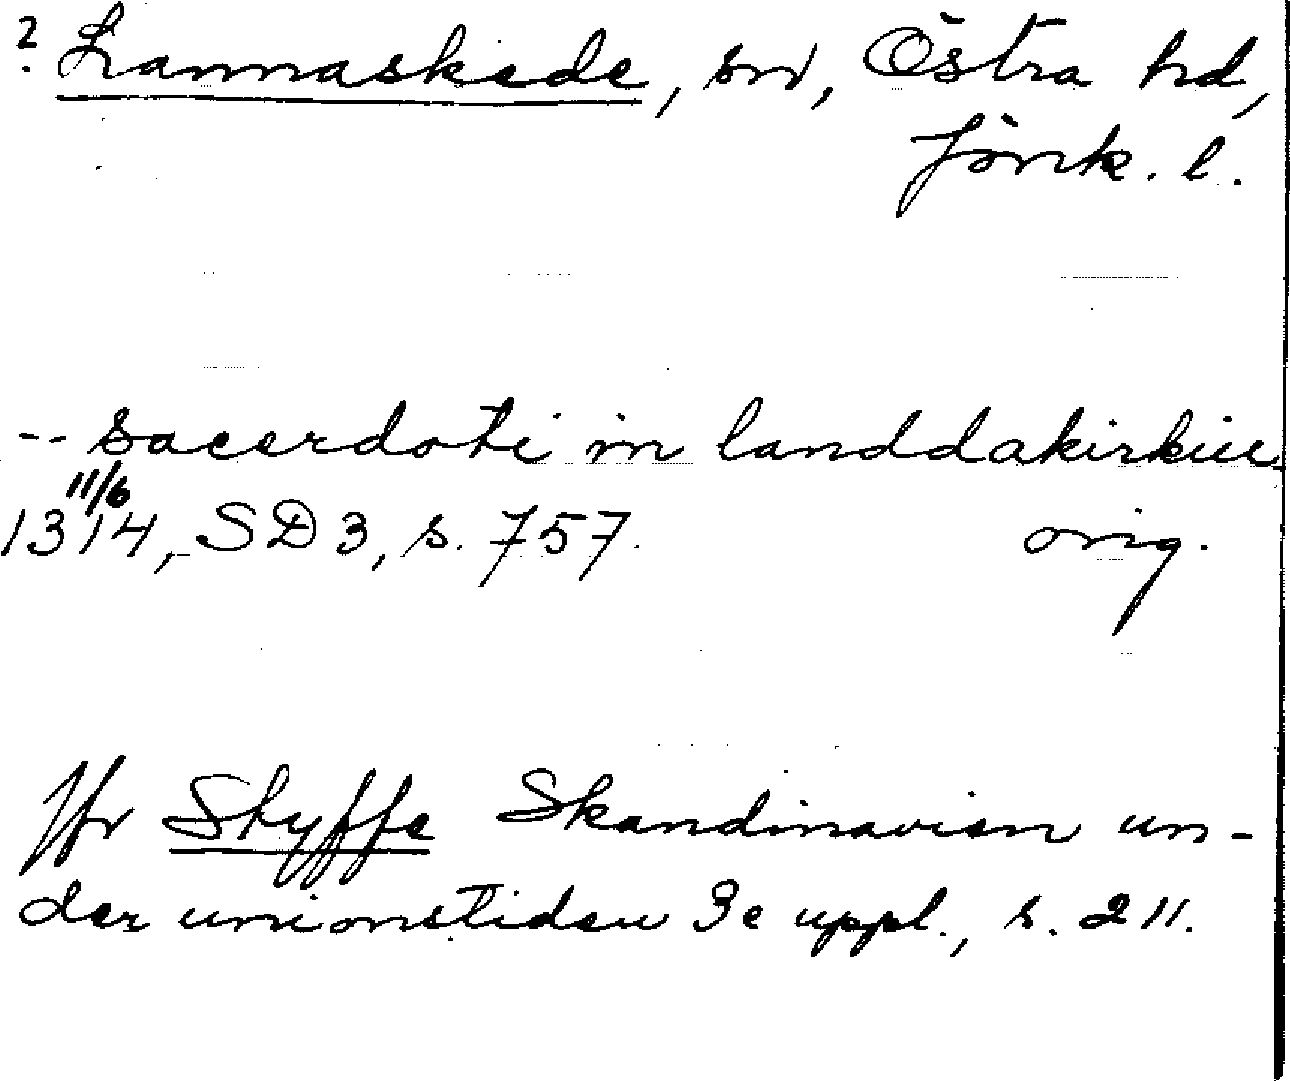 ? Lannaskede, sn, Östra hd,
Jönk. l.
-- sacerdoti in landdakirkiu
11/6
1314, SD 3, s. 757. orig.
Jfr Styffe Skandinavien un-
der unionstiden 3e uppl., s. 211.